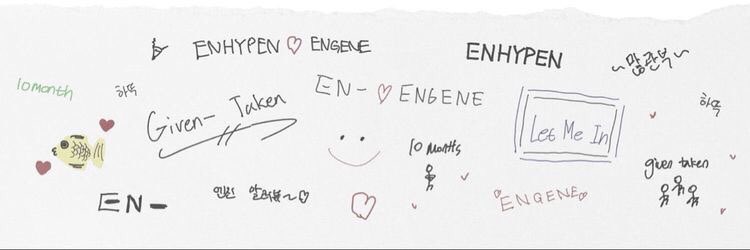 ENHYPEN ♡ ENGENE
ENHYPEN
~많관부~
10month
하뚝
Given- Taken
EN- ♡ ENGENE
Let Me In
하뚝
10 months
given taken
EN-
엔진 알러뷰~♡
♡ENGENE♡